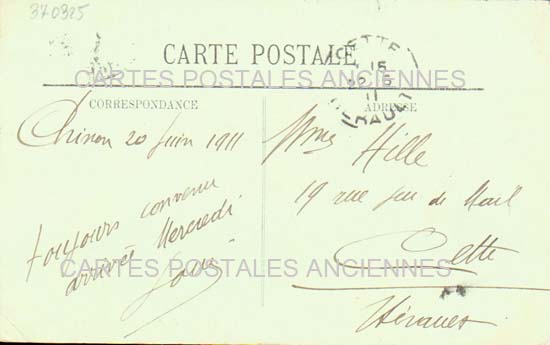 370325
CARTE POSTALE
CETTE
15
HERAULT
CARTES POSTALES ANCIENNES
CORRESPONDANCE
ADRESSE
Chinon 20 Juin 1911
toujours convenu
arrivée Mercredi
Mme Hille
19 rue Jeu de Mail
Cette
Hérault
CARTES POSTALES ANCIENNES